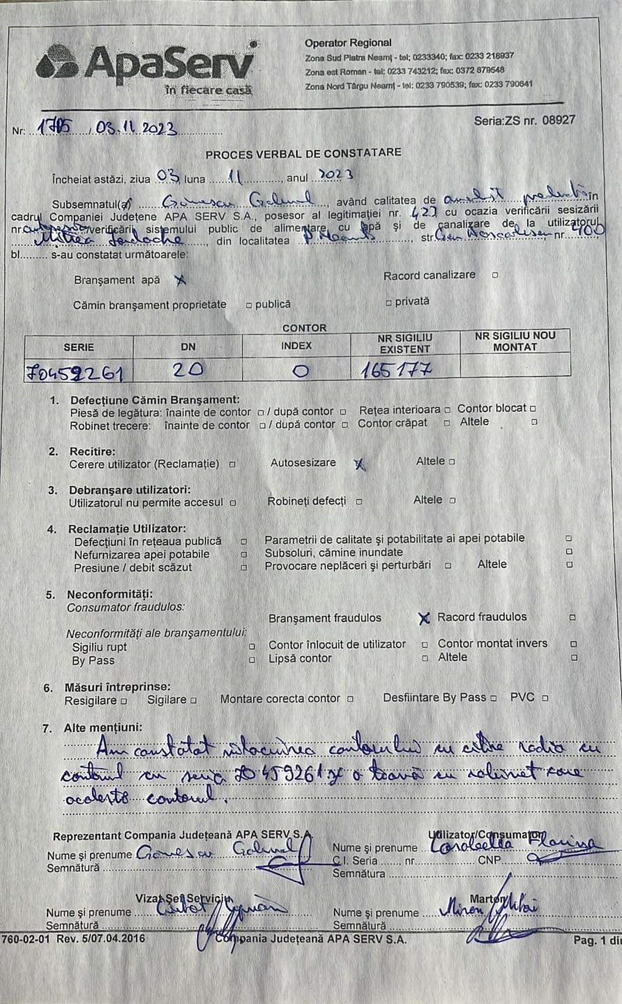 ApaServ
în fiecare casă
Operator Regional
Zona Sud Piatra Neamț - tel; 0233340; fax: 0233 218937
Zona est Roman - tel: 0233 743212; fax: 0372 879548
Zona Nord Târgu Neamț - tel; 0233 790539; fax: 0233 790641
Nr: 1705 / 03.11 2023
Seria:ZS nr. 08927
PROCES VERBAL DE CONSTATARE
Încheiat astăzi, ziua 03 luna 11, anul 2023
Subsemnatul(a) Gabriel, având calitatea de în
cadrul Companiei Județene APA SERV S.A., posesor al legitimației nr. 427 cu ocazia verificării sesizării
nr. /verificării sistemului public de alimentare cu apă și de canalizare de la utilizatorul
din localitatea str. nr. 400
bl...... s-au constatat următoarele:
Branșament apă x Racord canalizare □
Cămin branșament proprietate □ publică □ privată
CONTOR
SERIE DN INDEX NR SIGILIU EXISTENT NR SIGILIU NOU MONTAT
70459261 20 0 165177
1. Defecțiune Cămin Branșament:
Piesă de legătura: înainte de contor □ / după contor □ Rețea interioara □ Contor blocat □
Robinet trecere: înainte de contor □ / după contor □ Contor crăpat □ Altele □
2. Recitire:
Cerere utilizator (Reclamație) □ Autosesizare x Altele □
3. Debranșare utilizatori:
Utilizatorul nu permite accesul □ Robineți defecți □ Altele □
4. Reclamație Utilizator:
Defecțiuni în rețeaua publică □ Parametrii de calitate și potabilitate ai apei potabile □
Nefurnizarea apei potabile □ Subsoluri, cămine inundate □
Presiune / debit scăzut □ Provocare neplăceri și perturbări □ Altele □
5. Neconformități:
Consumator fraudulos:
Branșament fraudulos x Racord fraudulos □
Neconformități ale branșamentului:
Sigiliu rupt □ Contor înlocuit de utilizator □ Contor montat invers □
By Pass □ Lipsă contor □ Altele □
6. Măsuri întreprinse:
Resigilare □ Sigilare □ Montare corecta contor □ Desfiintare By Pass □ PVC □
7. Alte mențiuni:
Am constatat înlocuirea contorului cu citire radio cu
contorul cu seria 70459261 o teavă cu robinet care
ocolește contorul.
Reprezentant Compania Județeană APA SERV S.A.
Utilizator/Consumator
Nume și prenume Gabriel
Nume și prenume Florina
Semnătură
C.I. Seria ..... nr. CNP
Semnătura
Vizat Șef Serviciu
Martor
Nume și prenume
Nume și prenume Miron Mihai
Semnătură
Semnătură
760-02-01 Rev. 5/07.04.2016
Compania Județeană APA SERV S.A.
Pag. 1 din